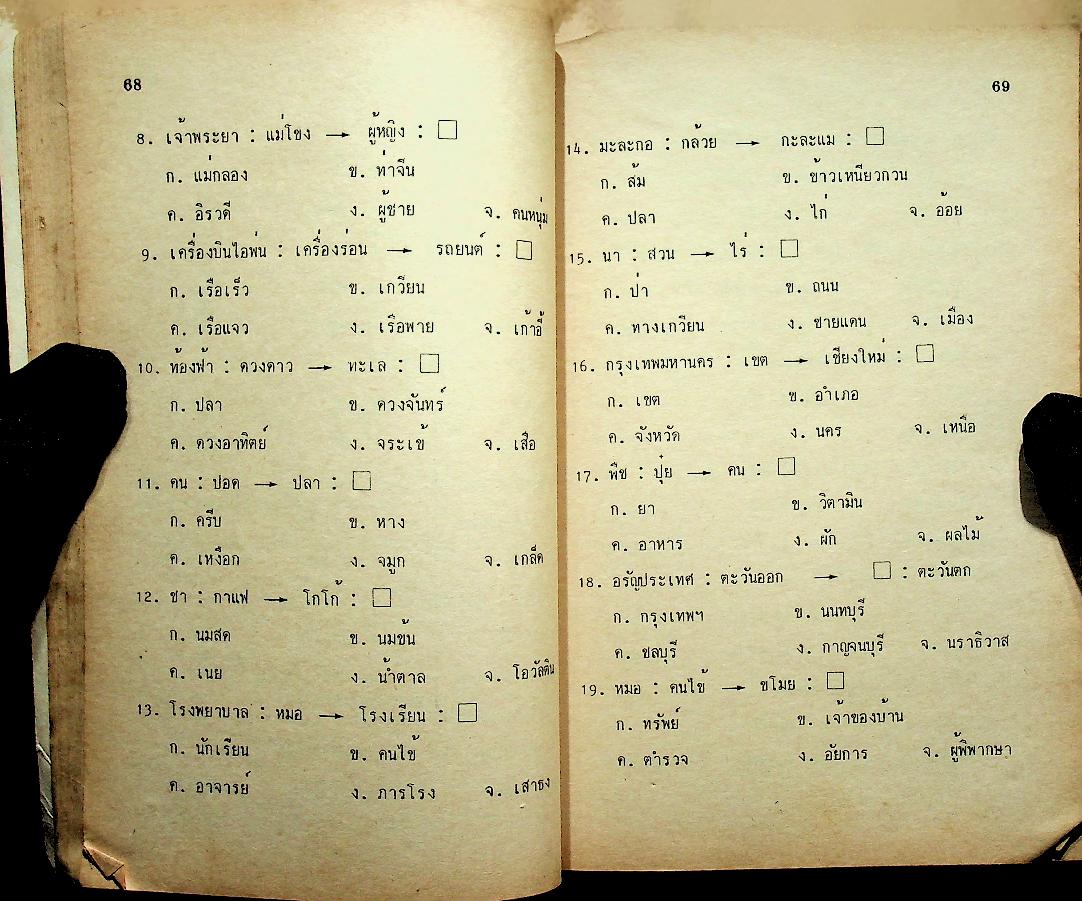 68
8. เจ้าพระยา : แม่โขง → ผู้หญิง : □
ก. แม่กลอง ข. ท่าจีน
ค. อิรวดี ง. ผู้ชาย จ. คนหนุ่ม
9. เครื่องบินไอพ่น : เครื่องร่อน → รถยนต์ : □
ก. เรือเร็ว ข. เกวียน
ค. เรือแจว ง. เรือพาย จ. เก้าอี้
10. ท้องฟ้า : ดวงดาว → ทะเล : □
ก. ปลา ข. ดวงจันทร์
ค. ดวงอาทิตย์ ง. จระเข้ จ. เสือ
11. คน : ปอด → ปลา : □
ก. ครีบ ข. หาง
ค. เหงือก ง. จมูก จ. เกล็ด
12. ชา : กาแฟ → โกโก้ : □
ก. นมสด ข. นมข้น
ค. เนย ง. น้ำตาล จ. โอวัลติน
13. โรงพยาบาล : หมอ → โรงเรียน : □
ก. นักเรียน ข. คนไข้
ค. อาจารย์ ง. ภารโรง จ. เสาธง
69
14. มะละกอ : กล้วย → กะละแม : □
ก. ส้ม ข. ข้าวเหนียวกวน
ค. ปลา ง. ไก่ จ. อ้อย
15. นา : สวน → ไร่ : □
ก. ป่า ข. ถนน
ค. ทางเกวียน ง. ชายแดน จ. เมือง
16. กรุงเทพมหานคร : เขต → เชียงใหม่ : □
ก. เขต ข. อำเภอ
ค. จังหวัด ง. นคร จ. เหนือ
17. พืช : ปุ๋ย → คน : □
ก. ยา ข. วิตามิน
ค. อาหาร ง. ผัก จ. ผลไม้
18. อรัญประเทศ : ตะวันออก → □ : ตะวันตก
ก. กรุงเทพฯ ข. นนทบุรี
ค. ชลบุรี ง. กาญจนบุรี จ. นราธิวาส
19. หมอ : คนไข้ → ขโมย : □
ก. ทรัพย์ ข. เจ้าของบ้าน
ค. ตำรวจ ง. อัยการ จ. ผู้พิพากษา